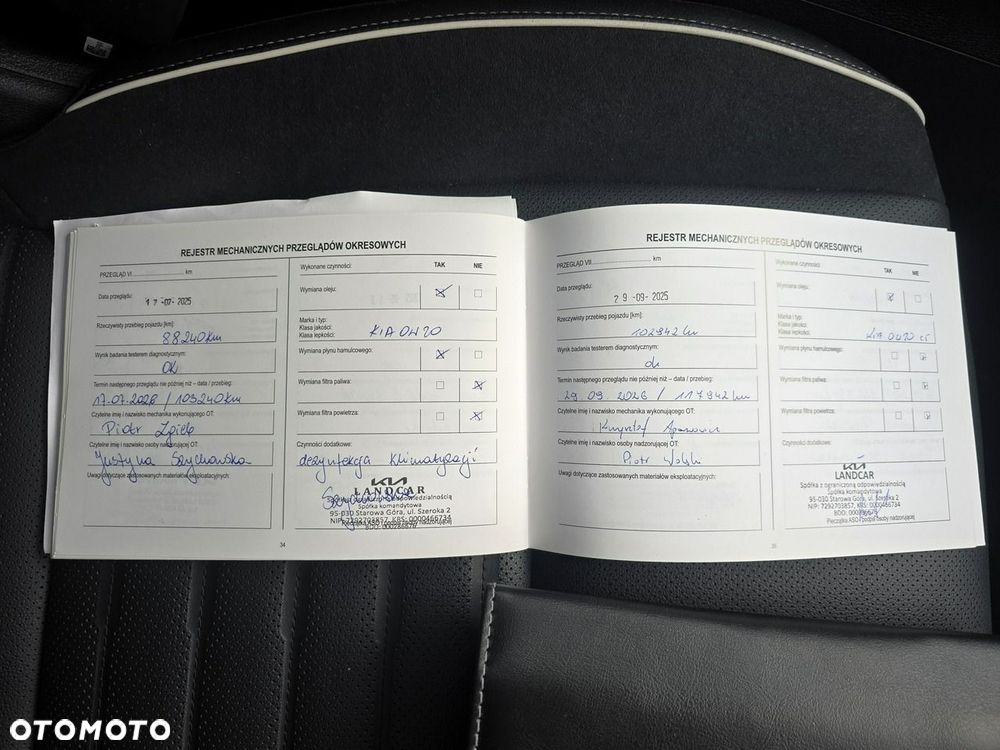 REJESTR MECHANICZNYCH PRZEGLĄDÓW OKRESOWYCH
PRZEGLĄD VI ........................ km
Data przeglądu:
17-07-2025
Rzeczywisty przebieg pojazdu [km]:
88240km
Wynik badania testerem diagnostycznym:
OK
Termin następnego przeglądu nie później niż – data / przebieg:
17.07.2026 / 103240km
Czytelne imię i nazwisko mechanika wykonującego OT:
Piotr
Czytelne imię i nazwisko osoby nadzorującej OT:
Justyna Szychowska
Uwagi dotyczące zastosowanych materiałów eksploatacyjnych:
Wykonane czynności:
TAK NIE
Wymiana oleju:
Marka i typ:
Klasa jakości:
Klasa lepkości:
KIA 0W20
Wymiana płynu hamulcowego:
Wymiana filtra paliwa:
Wymiana filtra powietrza:
Czynności dodatkowe:
dezynfekcja klimatyzacji
KIA
LANDCAR
Spółka z ograniczoną odpowiedzialnością
Spółka komandytowa
95-030 Starowa Góra, ul. Szeroka 2
NIP: 7292703857, KRS: 0000466734
34
REJESTR MECHANICZNYCH PRZEGLĄDÓW OKRESOWYCH
PRZEGLĄD VII ........................ km
Data przeglądu:
29-09-2025
Rzeczywisty przebieg pojazdu [km]:
102942 km
Wynik badania testerem diagnostycznym:
ok
Termin następnego przeglądu nie później niż – data / przebieg:
29 09 2026 / 117942 km
Czytelne imię i nazwisko mechanika wykonującego OT:
Krzysztof
Czytelne imię i nazwisko osoby nadzorującej OT:
Piotr
Uwagi dotyczące zastosowanych materiałów eksploatacyjnych:
Wykonane czynności:
TAK NIE
Wymiana oleju:
Marka i typ:
Klasa jakości:
Klasa lepkości:
KIA 0W20 c5
Wymiana płynu hamulcowego:
Wymiana filtra paliwa:
Wymiana filtra powietrza:
Czynności dodatkowe:
KIA
LANDCAR
Spółka z ograniczoną odpowiedzialnością
Spółka komandytowa
95-030 Starowa Góra, ul. Szeroka 2
NIP: 7292703857, KRS: 0000466734
Pieczątka ASO i podpis osoby nadzorującej
35
OTOMOTO